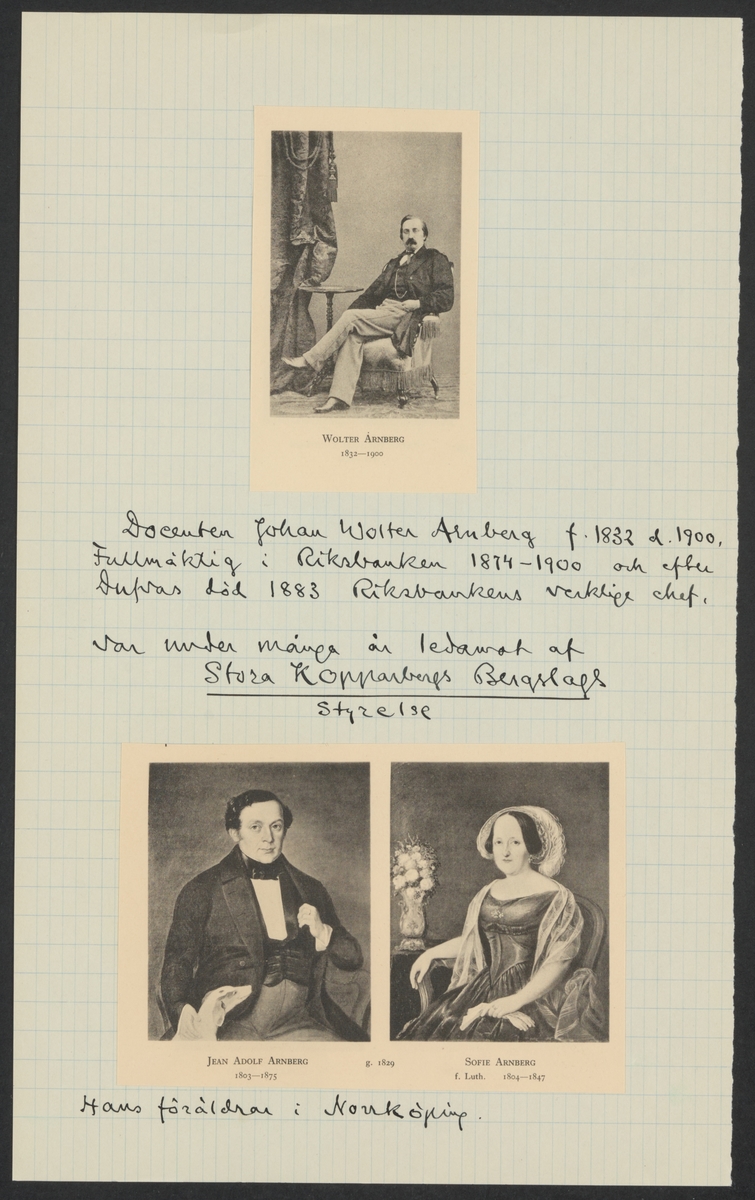 WOLTER ÅRNBERG
1832—1900
Docenten Johan Wolter Arnberg f. 1832 d. 1900.
Fullmäktig i Riksbanken 1874-1900 och efter
död 1883 Riksbankens verklige chef.
var under många år ledamot af
Stora Kopparbergs Bergslags
Styrelse
JEAN ADOLF ARNBERG g. 1829 SOFIE ARNBERG
1803—1875 f. Luth. 1804—1847
Hans föräldrar i Norrköping.